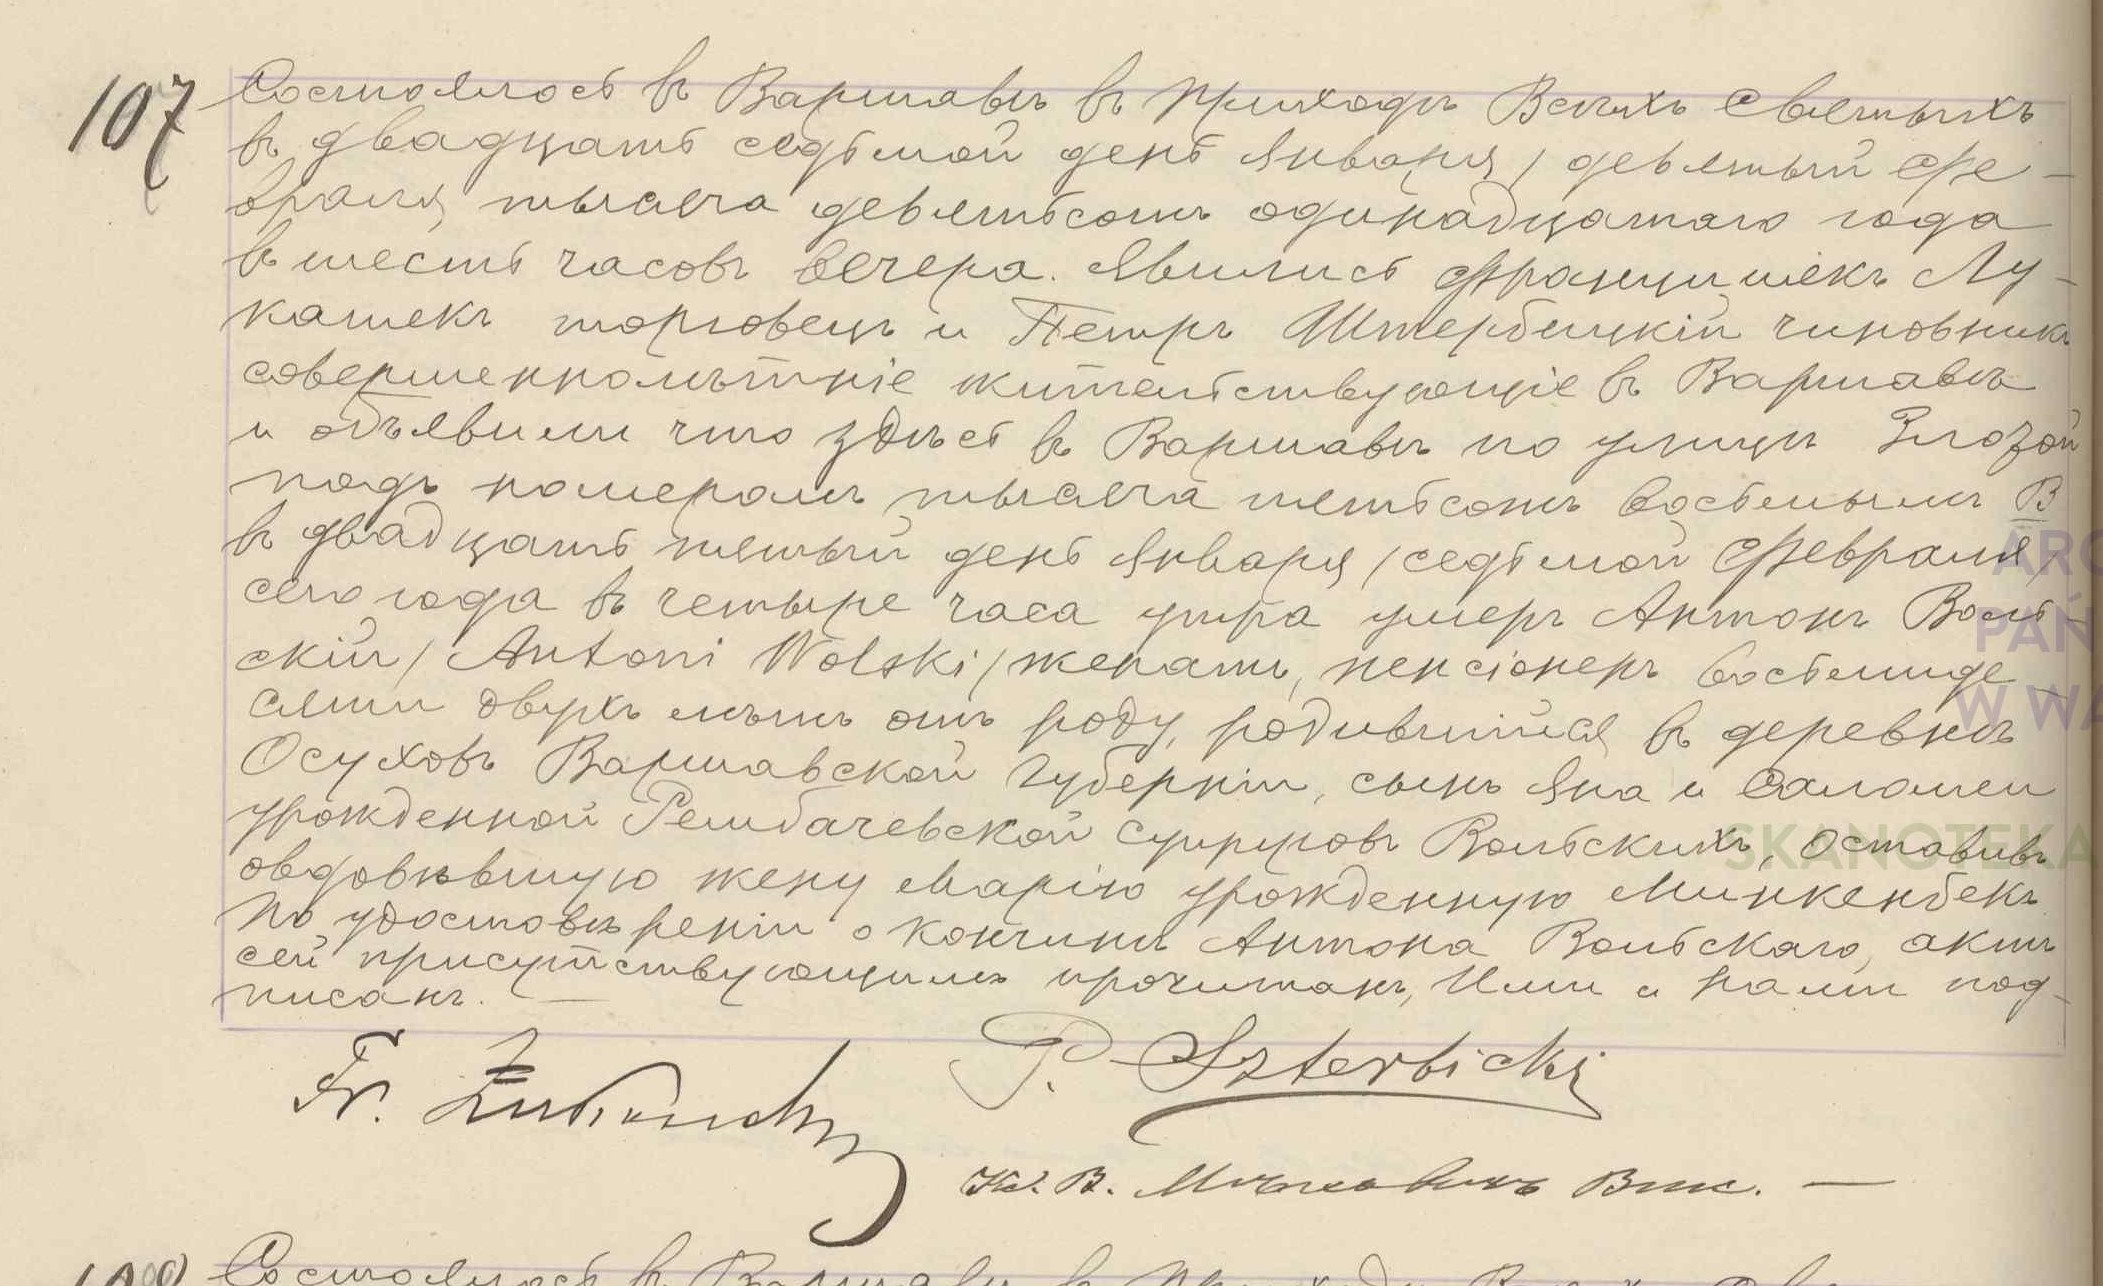 107 Состоялось въ Варшавѣ въ приходѣ Всѣхъ Святыхъ
въ двадцать седьмой день Января / девятый Фе-
враля, тысяча девятьсотъ одинадцатаго года
въ шесть часовъ вечера. Явились Францишекъ Лу-
кашекъ торговецъ и Петръ Штербицкій чиновникъ
совершеннолѣтніе жительствующіе въ Варшавѣ
и объявили что здѣсь въ Варшавѣ по улицѣ Злотой
подъ номеромъ тысяча пятьсотъ восьмымъ В
въ двадцать пятый день Января / седьмой Февраля /
сего года въ четыре часа утра умеръ Антонъ Воль-
скій / Antoni Wolski / женатъ, пенсіонеръ восьмиде-
сяти двухъ лѣтъ отъ роду, родившійся въ деревнѣ
Осуховъ Варшавской Губерніи, сынъ Яна и Саломеи
урожденной Рембачевской супруговъ Вольскихъ, оставивъ
овдовѣвшую жену Марію урожденную Минкенбекъ
По удостовѣреніи о кончинѣ Антона Вольскаго, актъ
сей присутствующимъ прочитанъ, Ими и Нами под-
писанъ. —
Fr. P. Szterbicki
Кс. В. Вик. —
Состоялось въ Варшавѣ въ
SKANOTEKA